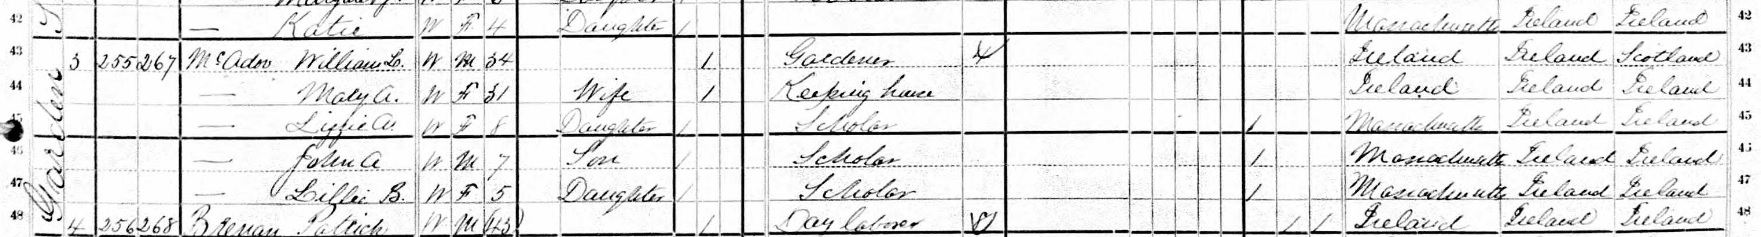 42 — Katie W F 4 Daughter / Massachusetts Ireland Ireland 42
43 3 255 267 McAdow William L. W M 34 1 Gardener 4 Ireland Ireland Scotland 43
44 — Mary A. W F 31 Wife 1 Keeping house Ireland Ireland Ireland 44
45 — Lizzie W F 8 Daughter / Scholar 1 Massachusetts Ireland Ireland 45
46 — John A W M 7 Son / Scholar 1 Massachusetts Ireland Ireland 46
47 — Lillie B. W F 5 Daughter / Scholar 1 Massachusetts Ireland Ireland 47
48 4 256 268 Brenan Patrick W M 43 1 Day laborer 1 1 Ireland Ireland Ireland 48
Garden